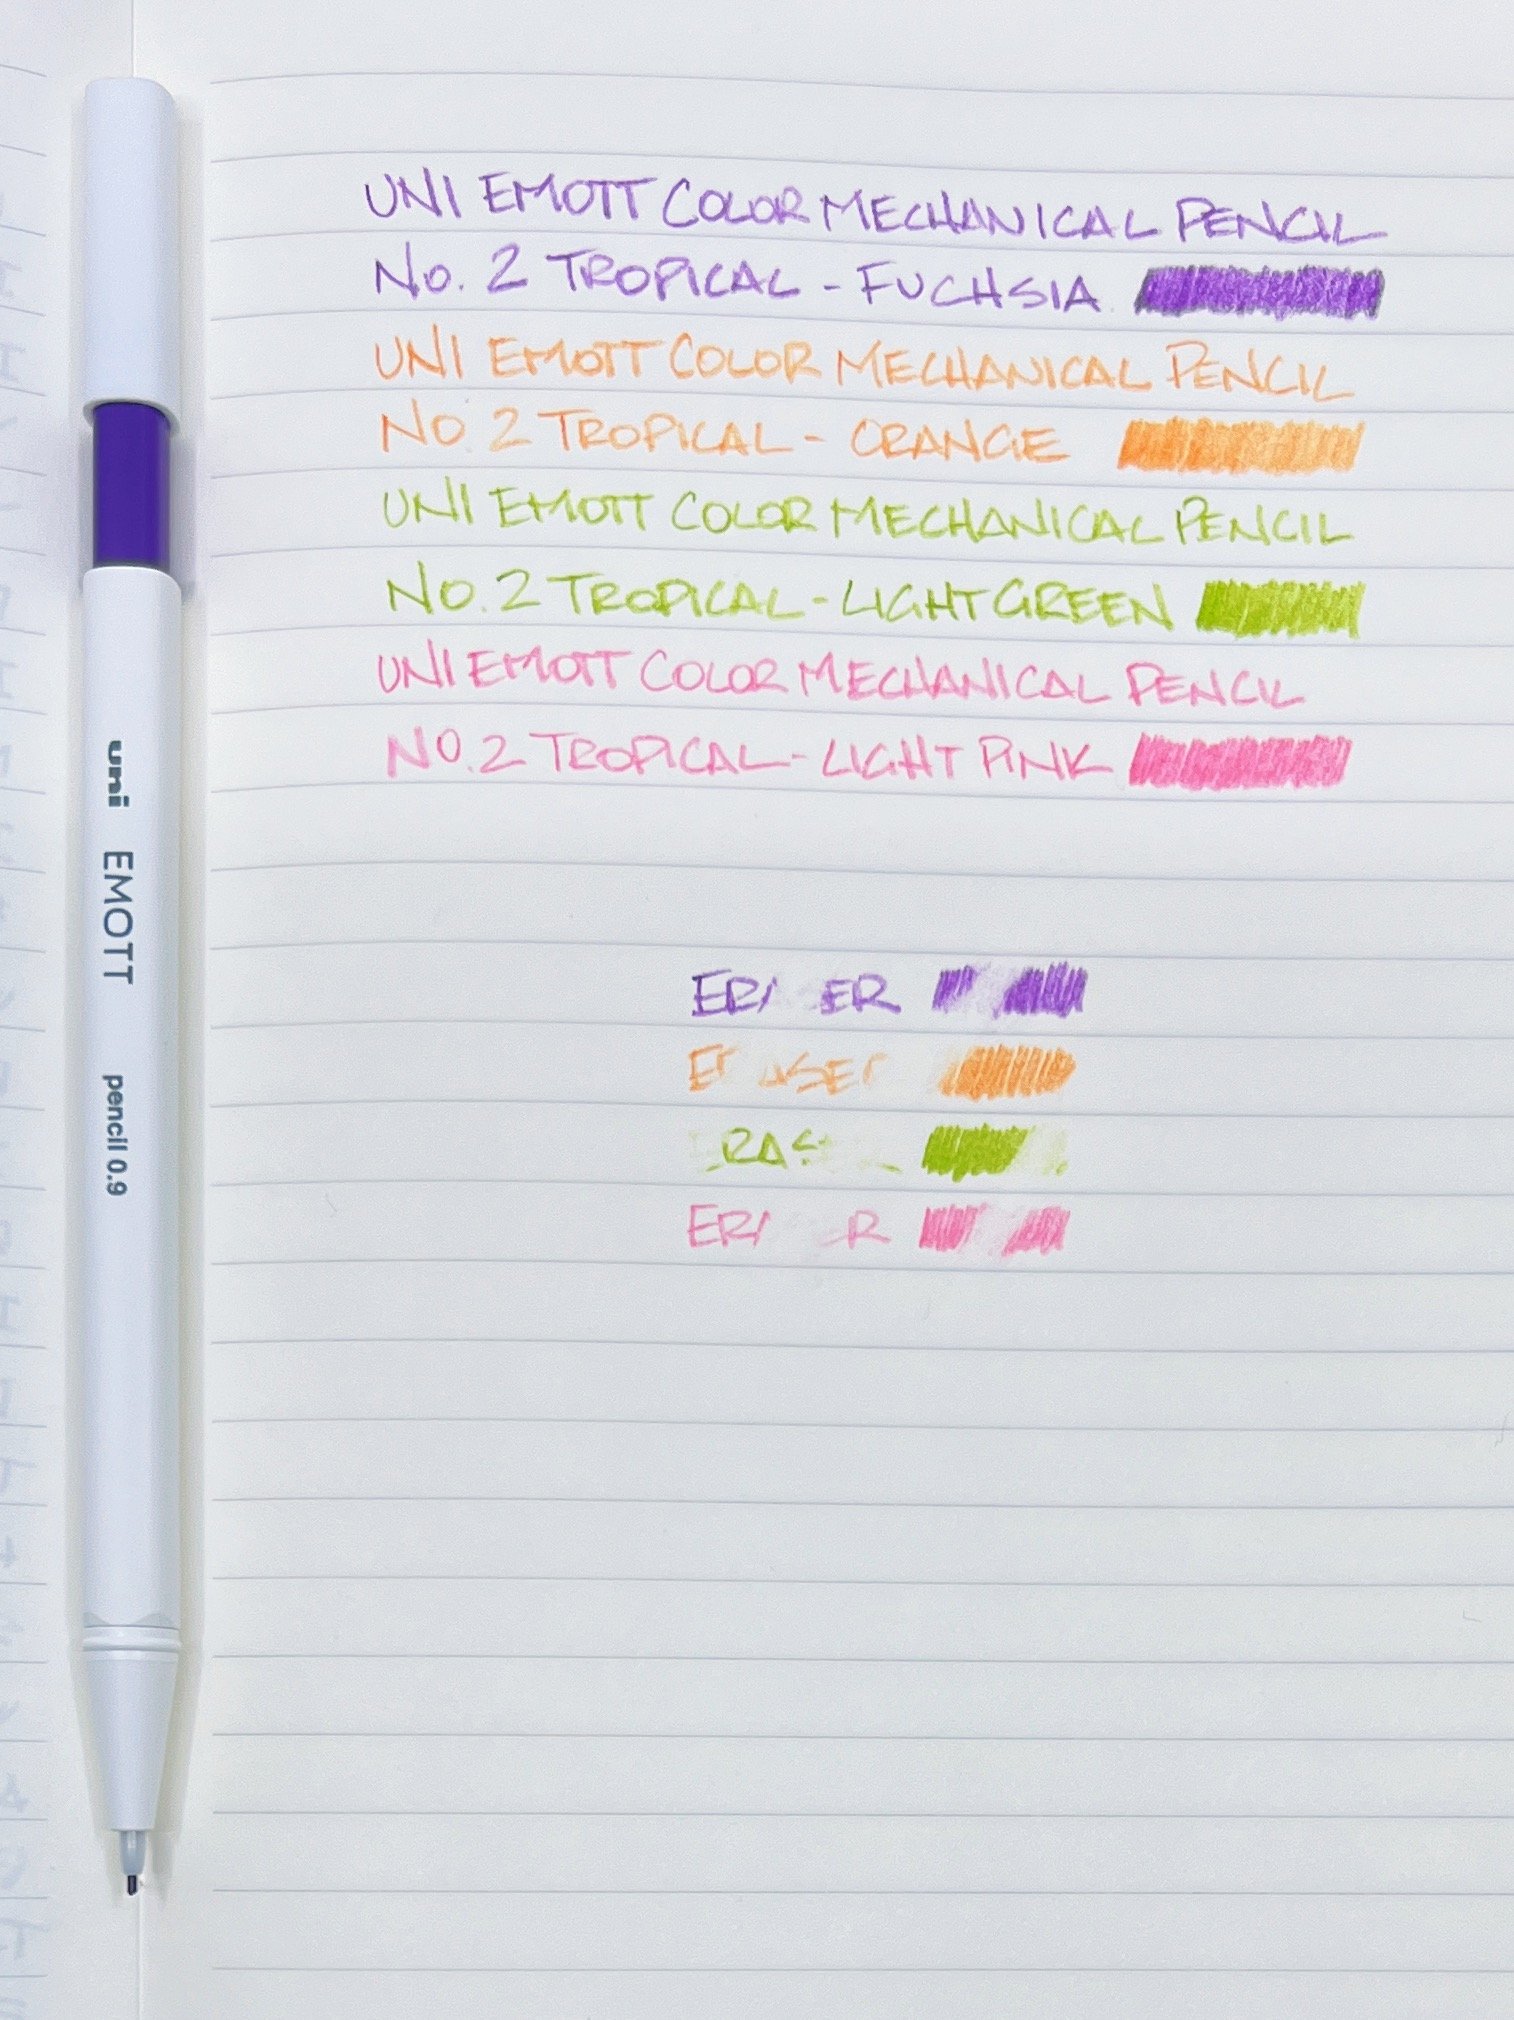 UNI EMOTT COLOR MECHANICAL PENCIL
No. 2 TROPICAL - FUCHSIA
UNI EMOTT COLOR MECHANICAL PENCIL
No. 2 TROPICAL - ORANGE
UNI EMOTT COLOR MECHANICAL PENCIL
No. 2 TROPICAL - LIGHT GREEN
UNI EMOTT COLOR MECHANICAL PENCIL
NO. 2 TROPICAL - LIGHT PINK
uni EMOTT pencil 0.9